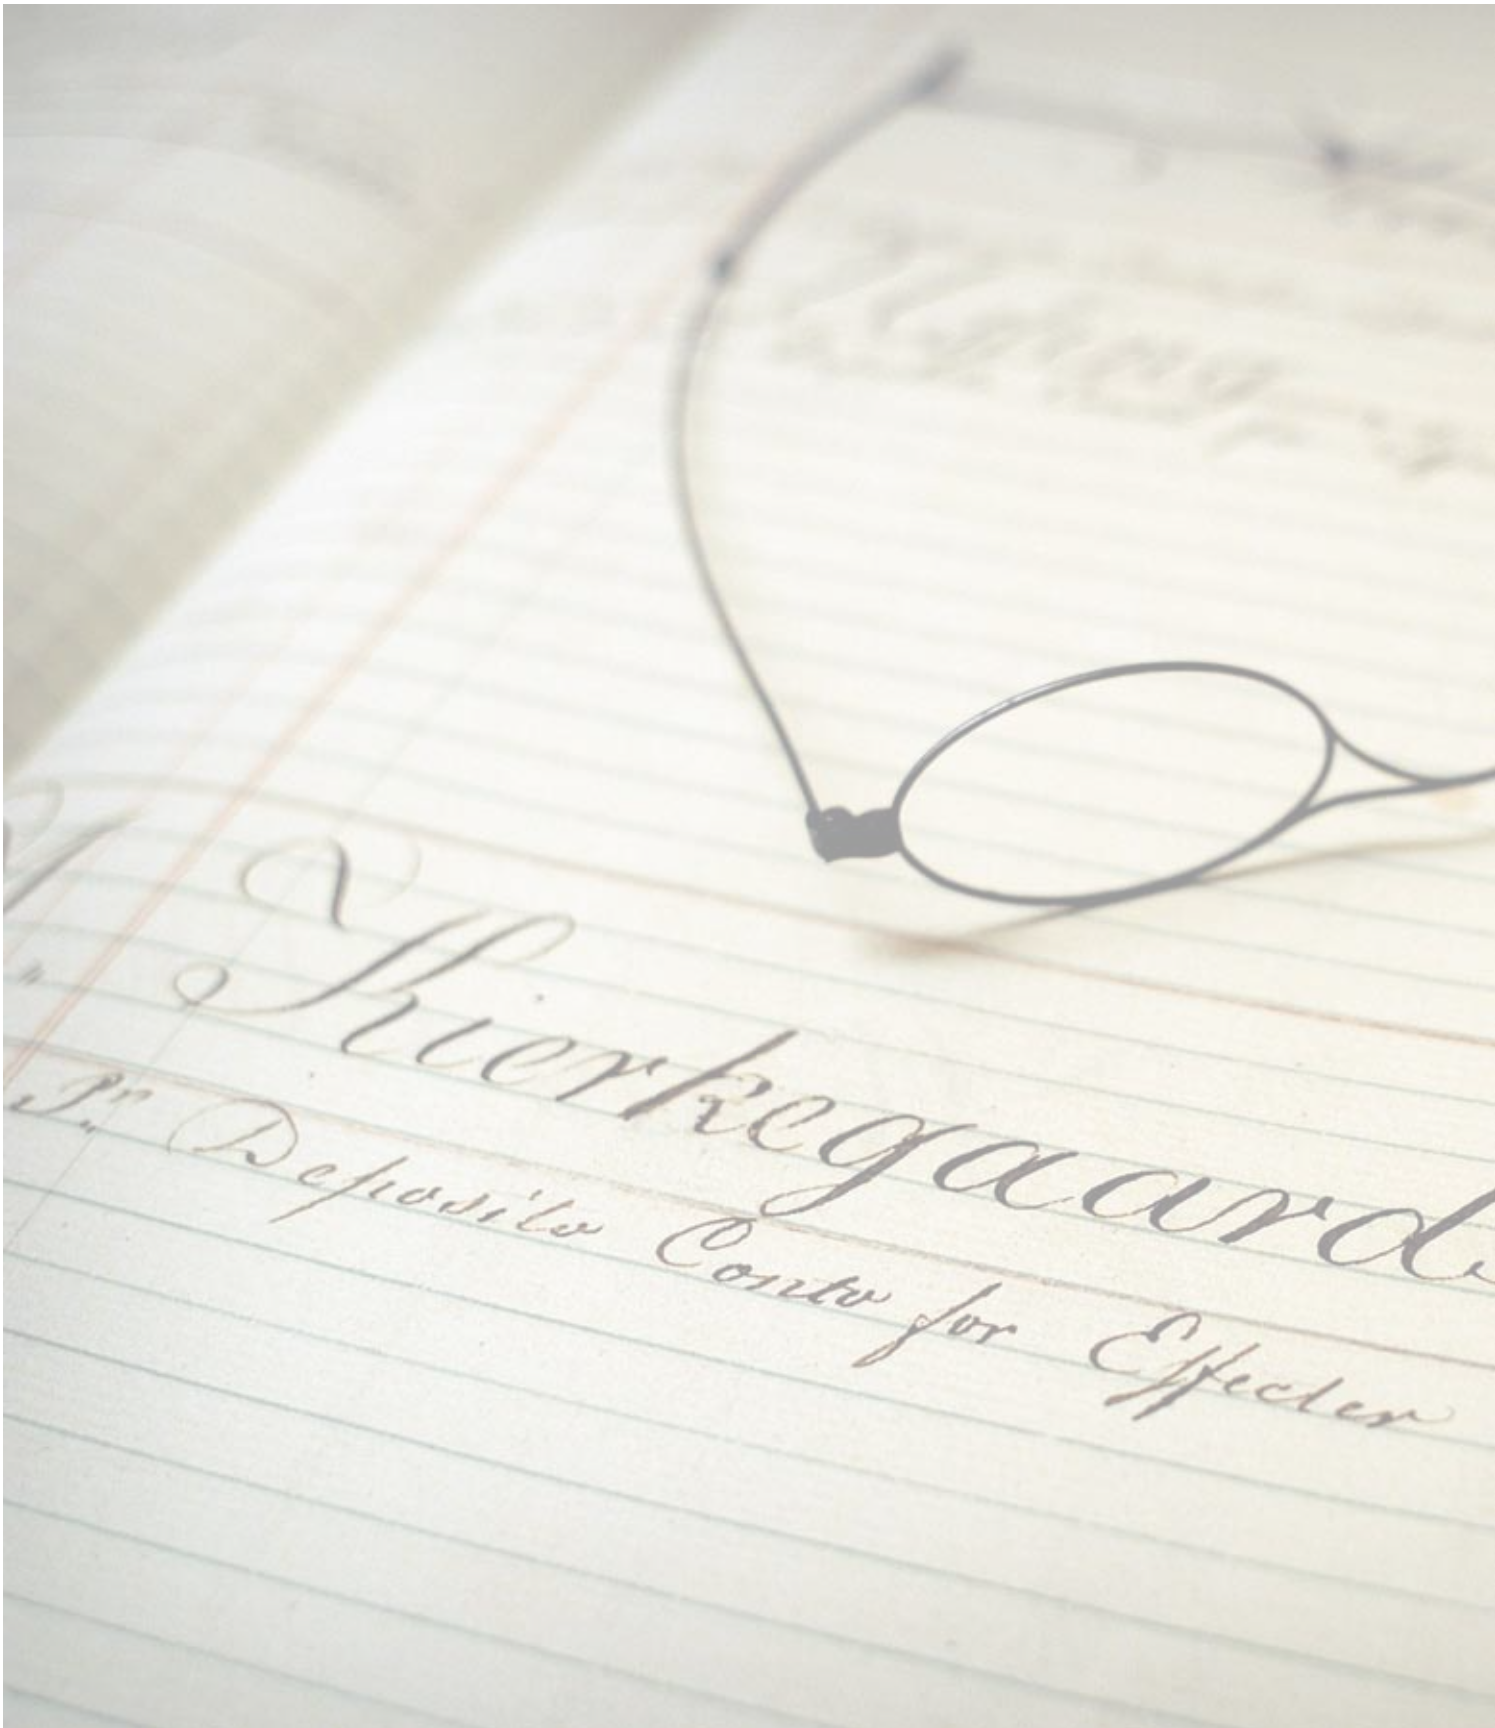 Kierkegaard
Pr Deposito Conto for Effecter